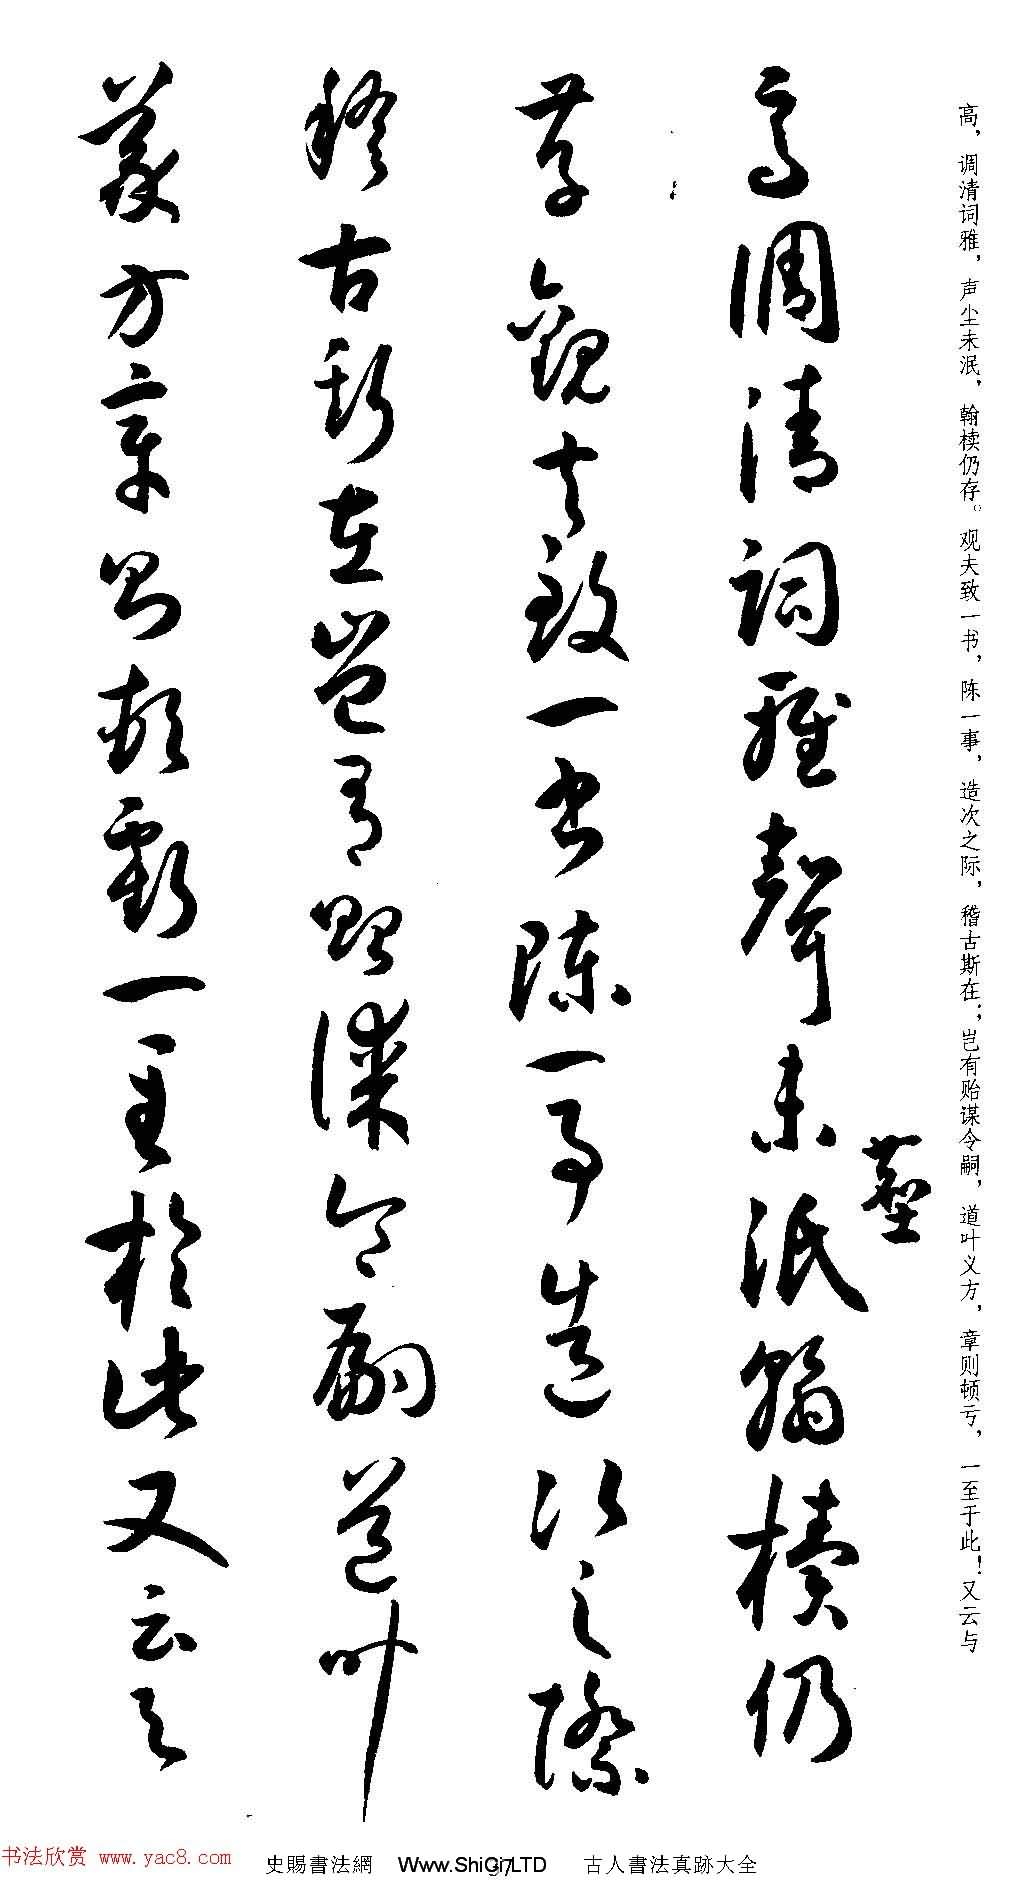 高，调清词雅，声尘未泯，翰椟仍存。观夫致一书，陈一事，造次之际，稽古斯在；岂有贻谋令嗣，道叶义方，章则顿亏，一至于此！又云与
高調清詞雅聲未泯翰櫝仍
塵
存觀夫致一書陳一事造次之際
稽古斯在豈有貽謀令嗣道叶
義方章則頓虧一至於此又云與
书法欣赏 www.yac8.com
史賜書法網 Www.ShiGi.LTD 古人書法真跡大全